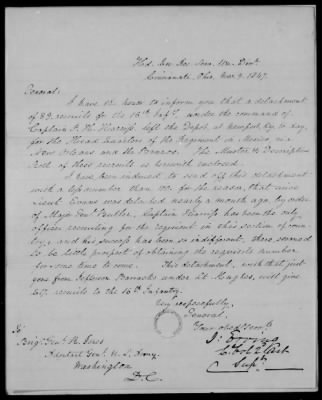 Hd. Qrs Rec. Serv. Wn. Div.
Cincinnati, Ohio, Nov. 9. 1847.
General:
I have the honor to inform you that a detachment
of 89 recruits for the 16th Inf., under the command of
Captain left the Depot, at Newport Ky. to day,
for the Head Quarters of the Regiment in Mexico, via
New Orleans and the Brazos. The Muster & Description
Roll of these recruits is herewith enclosed.
I have been induced to send off this detachment
with a less number than 100. for the reason, that since
Lieut was detached, nearly a month ago, by order
of Major Genl. Butler, Captain has been the only
officer recruiting for the regiment in this section of coun-
try, and his success has been so indifferent, there seemed
to be little prospect of obtaining the requisite number
for some time to come. This detachment, with that just
gone from Jefferson Barracks under Lt. Hughes, will give
recruits to the 16th Infantry.
Very respectfully,
General,
Your obedt Servt.
Lt Col 2 Art
Supt.
To
Brigr. Genl. R. Jones
Adjutant Genl. U. S. Army.
Washington
D. C.